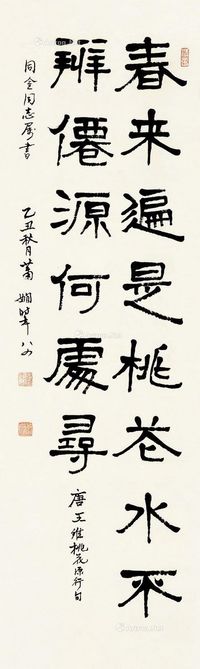 春来遍是桃花水不
辨僊源何處尋
唐王維桃花源行句
同金同志屬書
乙丑秋月蕭嫻時年八四